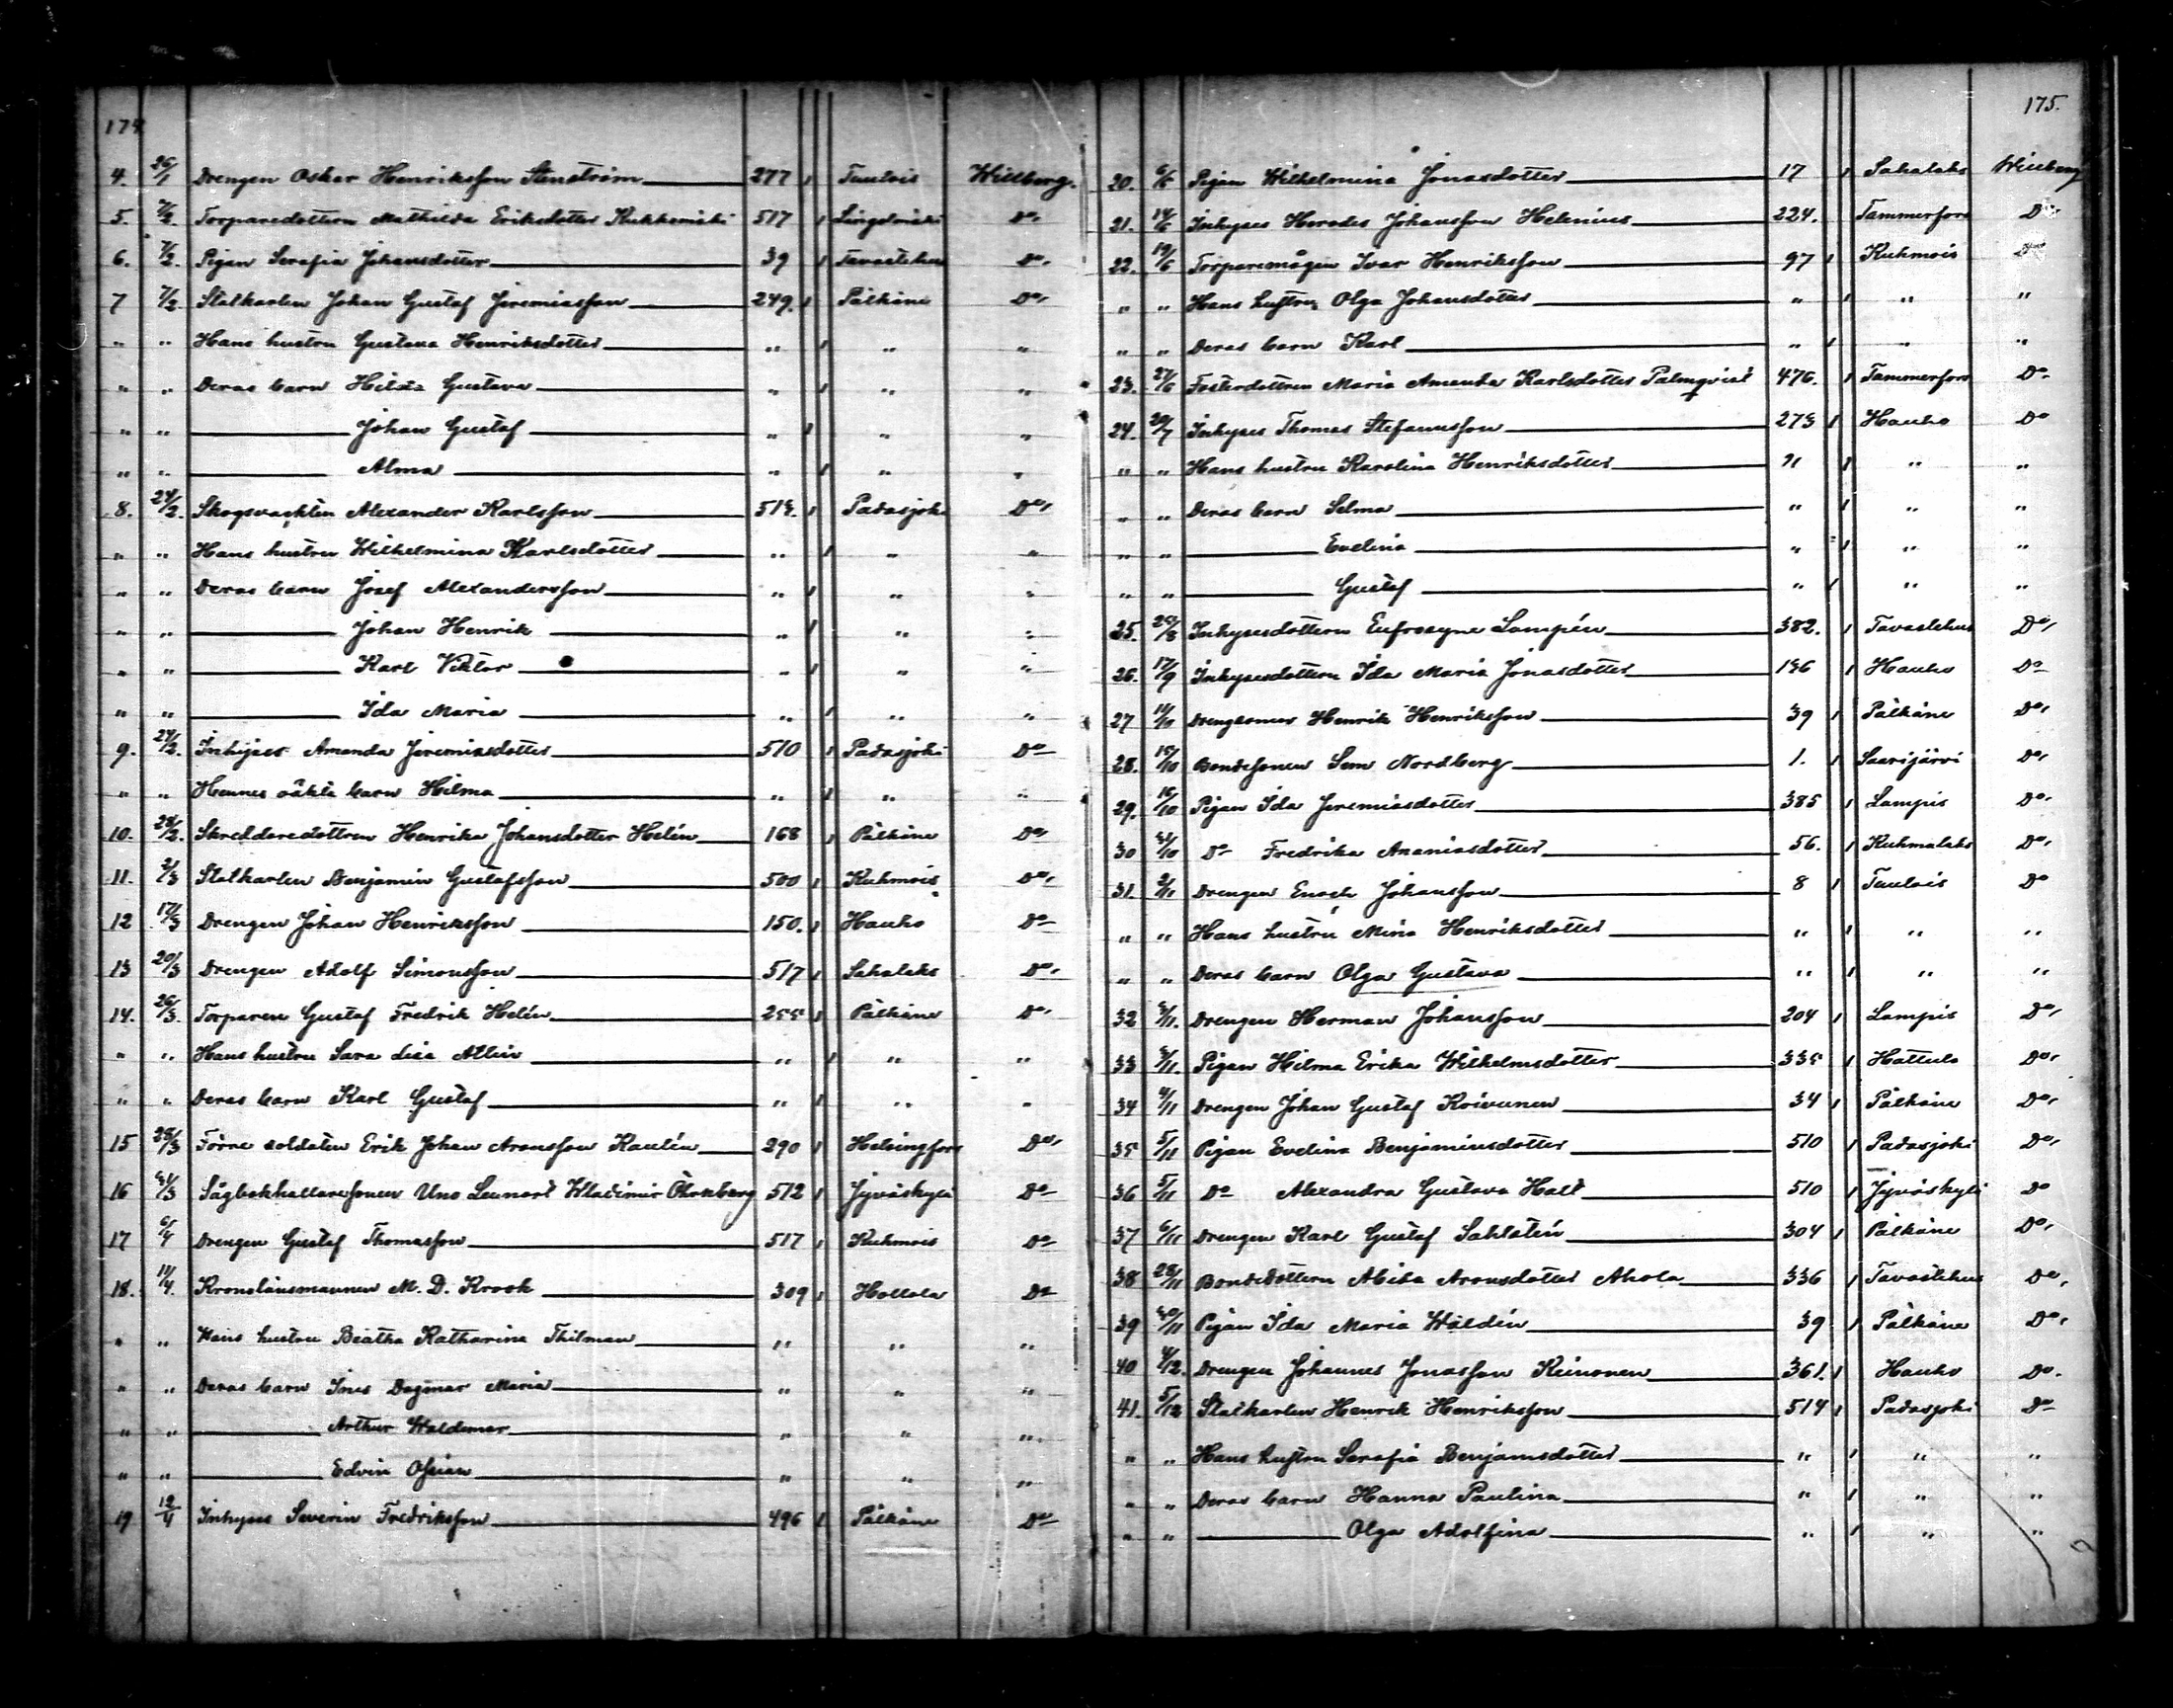 174
4. 26/1 Drengen Oskar Henriksson Stenström 277 1 Tuulois Willberg.
5. 7/2. Torparedottern Mathilda Eriksdotter Kukkomäki 517 1 Längelmäki Do,
6. 7/2. Pigan Serafia Johansdotter 39 1 Tavastehus Do,
7 7/2 Statkarlen Johan Gustaf Jeremiasson 249. 1 Pälkäne Do,
" " Hans hustru Gustava Henriksdotter " 1 " "
" " Deras barn Hilda Gustava " 1 " "
" " Johan Gustaf " 1 " "
" " Alma " 1 " "
8. 24/2. Skogsvakten Alexander Karlsson 514. 1 Padasjoki Do,
" " Hans hustru Wilhelmina Karlsdotter " 1 " "
" " Deras barn Josef Alexandersson " 1 " "
" " Johan Henrik " 1 " "
" " Karl Viktor " 1 " "
" " Ida Maria " 1 " "
9. 24/2. Inhyses Amanda Jeremiasdotter 510 1 Padasjoki Do
" " Hennes oäkta barn Hilma " 1 " "
10. 28/2. Skreddaredottren Henrika Johansdotter Helén 168 1 Pälkäne Do,
11. 2/3 Statkarlen Benjamin Gustafsson 500 1 Kuhmois Do,
12 17/3 Drengen Johan Henriksson 150. 1 Hauho Do
13 20/3 Drengen Adolf Simonsson 517 1 Sahalaks Do,
14. 26/3. Torparen Gustaf Fredrik Helén 255 1 Pälkäne Do,
" " Hans hustru Sara Lisa Allin " 1 " "
" " Deras barn Karl Gustaf " 1 " "
15 28/3 Förre soldaten Erik Johan Aronsson Kaulén 290 1 Helsingfors Do,
16 31/3 Sågbokhållaresonen Uno Lennart Wladimir Öhrnberg 512 1 Jyväskylä Do
17 6/4 Drengen Gustaf Thomasson 517 1 Kuhmois Do
18. 11/4. Kronolänsmannen M. D. Krook 309 1 Hollola Do
" " Hans hustru Beatha Katharina Thilman " " "
" " Deras barn Ines Dagmar Maria " " "
" " Arthur Waldemar " " "
" " Edvin Ossian " " "
19 12/4 Inhyses Severin Fredriksson 496 1 Pälkäne Do
175.
20. 6/6 Pigan Wilhelmina Jonasdotter 17 1 Sahalaks Willberg
21. 14/6 Inhyses Herodes Johansson Helenius 224. Tammerfors Do
22. 19/6 Torparemågen Ivar Henriksson 97 1 Kuhmois Do
" " Hans hustru Olga Johansdotter " 1 " "
" " Deras barn Karl " 1 " "
23. 27/6 Fosterdottren Maria Amanda Karlsdotter Palmqvist 476. 1 Tammerfors Do
24. 20/7 Inhyses Thomas Stefansson 273 1 Hauho Do
" " Hans hustru Karolina Henriksdotter " 1 " "
" " Deras barn Selma " 1 " "
" " Evelina " 1 " "
" " Gustaf " 1 " "
25. 20/8 Inhysesdottern Eufrosyne Lampén 382. 1 Tavastehus Do,
26. 17/9 Inhysesdottern Ida Maria Jonasdotter 196 1 Hauho Do
27 11/10 Drengsonen Henrik Henriksson 39 1 Pälkäne Do,
28. 15/10 Bondesonen Sem Nordberg 1. 1 Saarijärvi Do,
29. 16/10 Pigan Ida Jeremiasdotter 385 1 Lampis Do,
30 31/10 Do Fredrika Ananiasdotter 56. 1 Kuhmalaks Do,
31. 2/11 Drengen Enoch Johansson 8 1 Tuulois Do
" " Hans hustru Mina Henriksdotter " 1 " "
" " Deras barn Olga Gustava " 1 " "
32 3/11. Drengen Herman Johansson 204 1 Lampis Do,
33 3/11. Pigan Hilma Erika Wilhelmsdotter 335 1 Hattula Do,
34 4/11 Drengen Johan Gustaf Koivunen 34 1 Pälkäne Do,
35 5/11 Pigan Evelina Benjaminsdotter 510 1 Padasjoki Do,
36 5/11 Do Alexandra Gustava Hall 510 1 Jyväskylä Do
37 6/11 Drengen Karl Gustaf Sahlstén 304 1 Pälkäne Do,
38 28/11 Bondedottern Alida Aronsdotter Ahola 336 1 Tavastehus Do,
39 30/11 Pigan Ida Maria Waldén 39 1 Pälkäne Do,
40 4/12. Drengen Johannes Jonasson Keinonen 361. 1 Hauho Do.
41. 5/12 Statkarlen Henrik Henriksson 514 1 Padasjoki Do
" " Hans hustru Serafia Benjamsdotter " 1 " "
" " Deras barn Hanna Paulina " 1 " "
" " Olga Adolfina " 1 " "